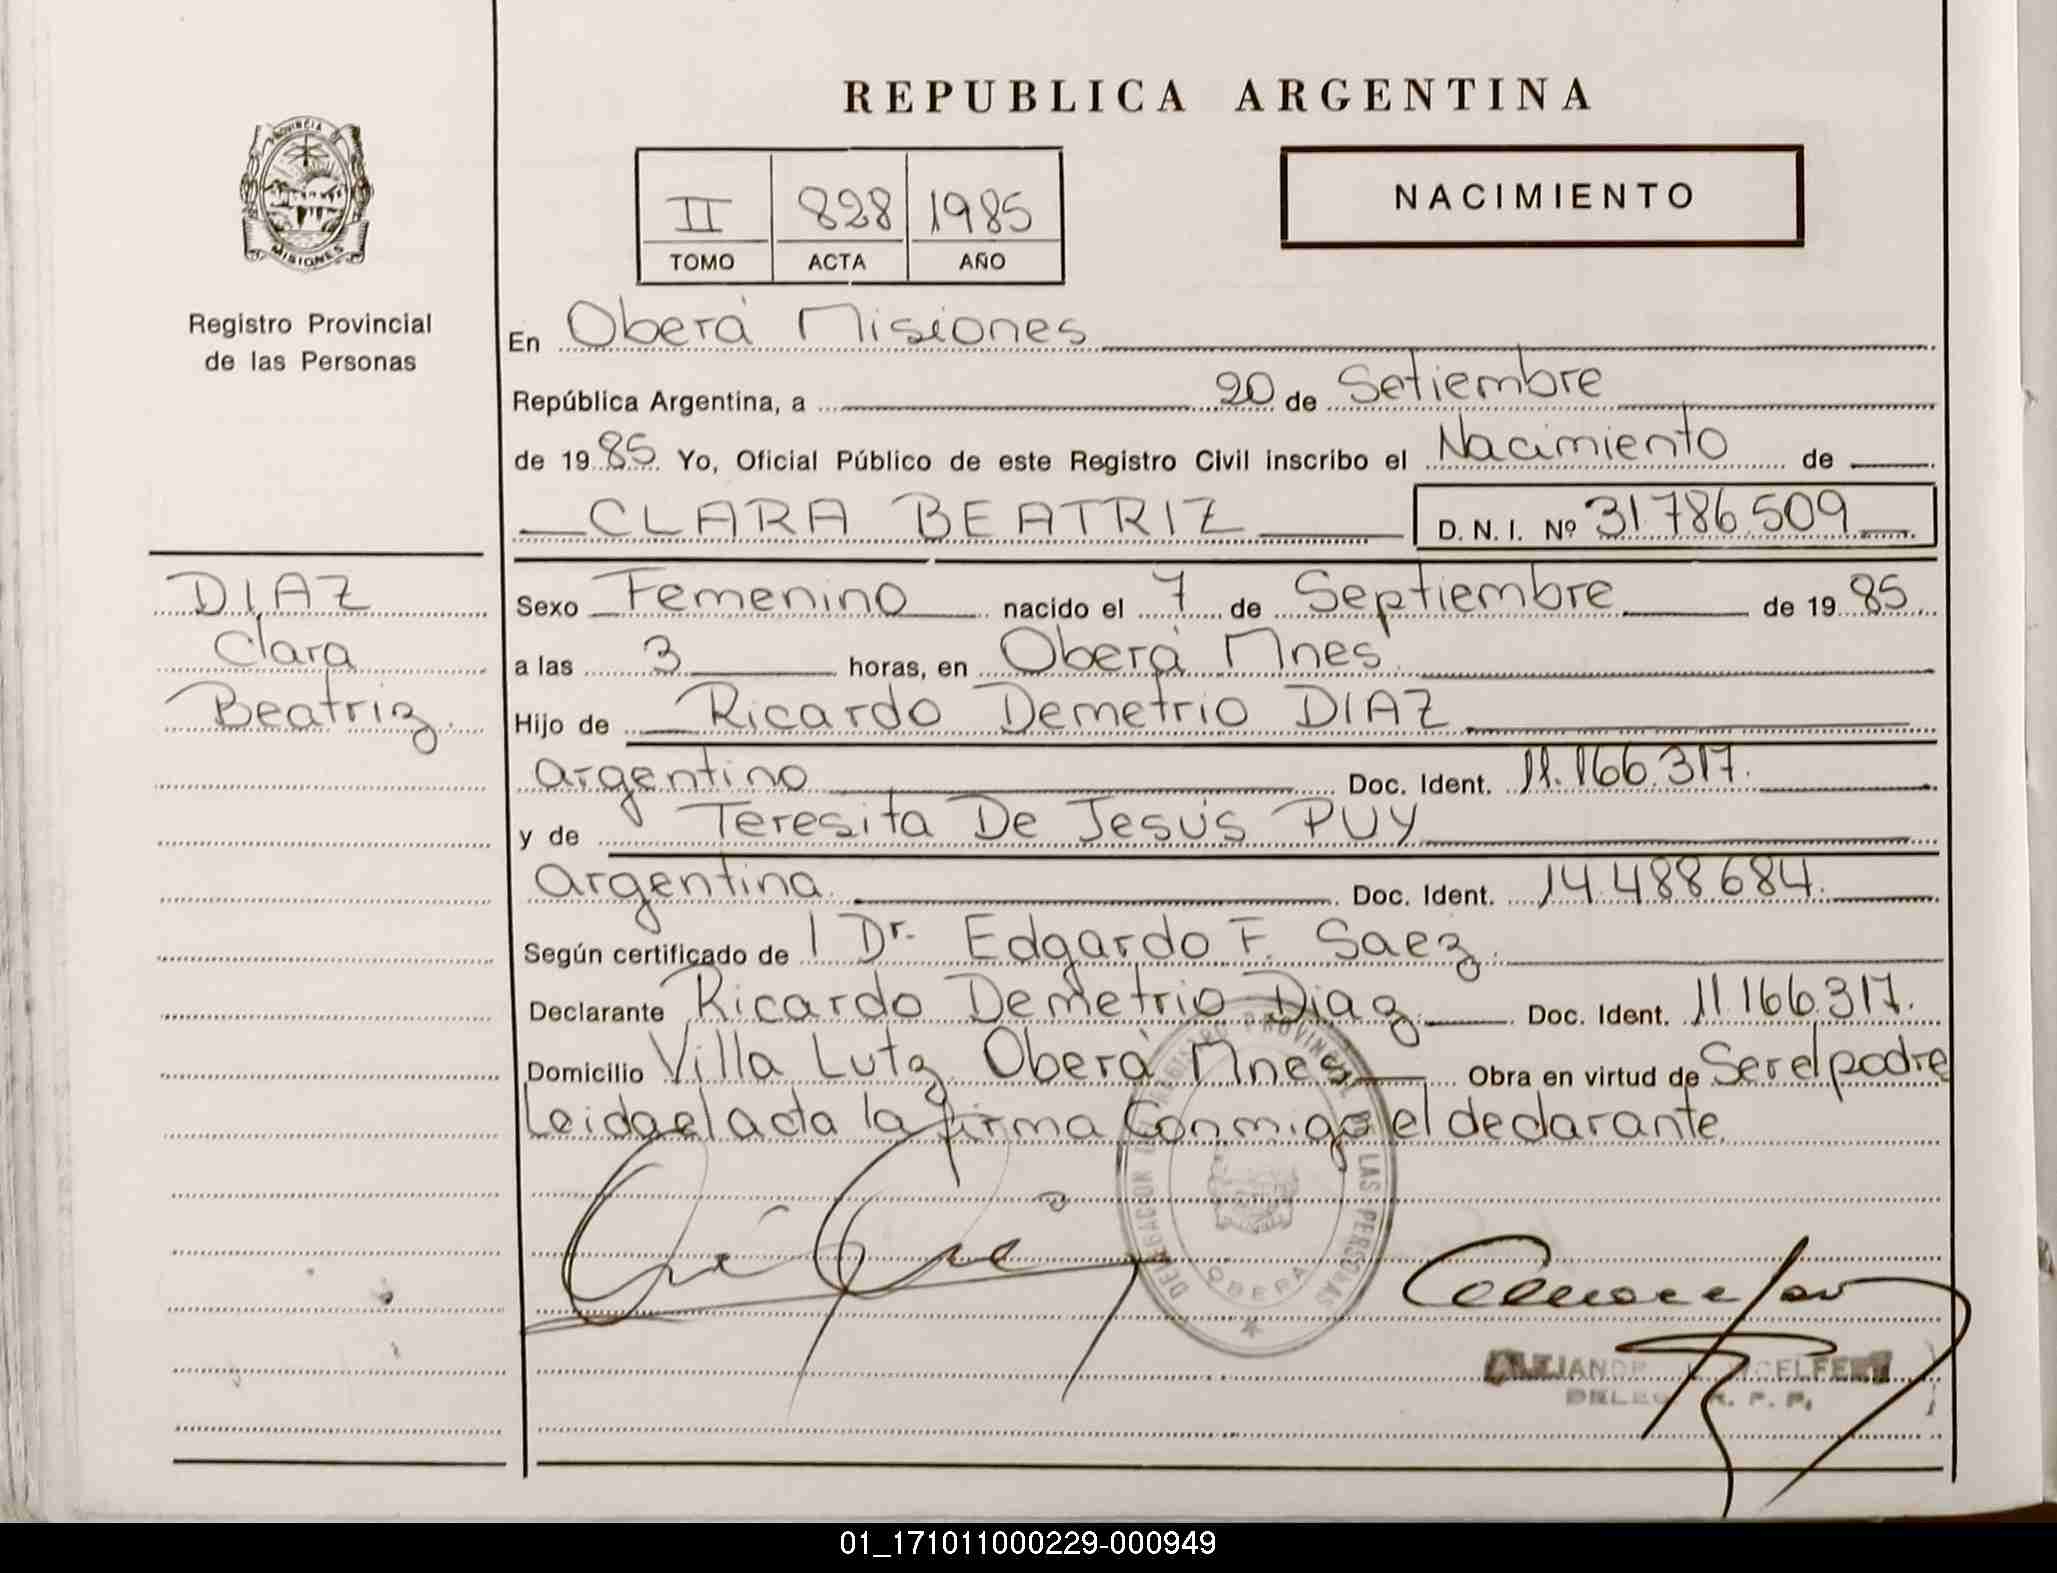 REPUBLICA ARGENTINA
PROVINCIA DE
MISIONES
Registro Provincial
de las Personas
II 828 1985
TOMO ACTA AÑO
NACIMIENTO
En Oberá Misiones
República Argentina, a 20 de Setiembre
de 1985 Yo, Oficial Público de este Registro Civil inscribo el Nacimiento de
CLARA BEATRIZ D. N. I. Nº 31.786.509
DIAZ
Clara
Beatriz.
Sexo Femenino nacido el 7 de Septiembre de 1985
a las 3 horas, en Oberá Mnes.
Hijo de Ricardo Demetrio DIAZ
argentino Doc. Ident. 11.166.317.
y de Teresita De Jesús PUY
argentina. Doc. Ident. 14.488.684.
Según certificado de l Dr. Edgardo F. Saez.
Declarante Ricardo Demetrio Diaz Doc. Ident. 11.166.317.
Domicilio Villa Lutz Oberá Mnes Obra en virtud de Ser el padre
Leida el acta la firma Conmigo el declarante.
DELEGACION PROVINCIAL DE LAS PERSONAS
OBERA
R. P. P.
01_171011000229-000949